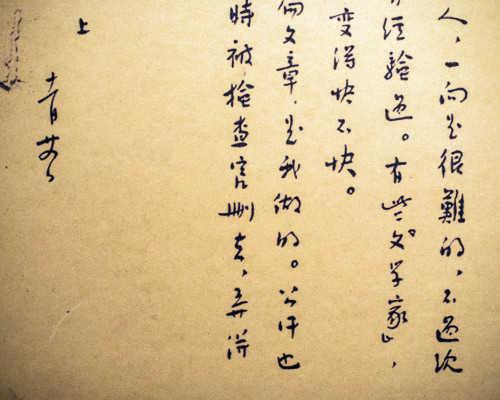 人，一向是很難的，不過現
經驗過。有些“文學家”，
变得快不快。
文章，是我做的。公汗也
時被檢查官刪去，弄得
上